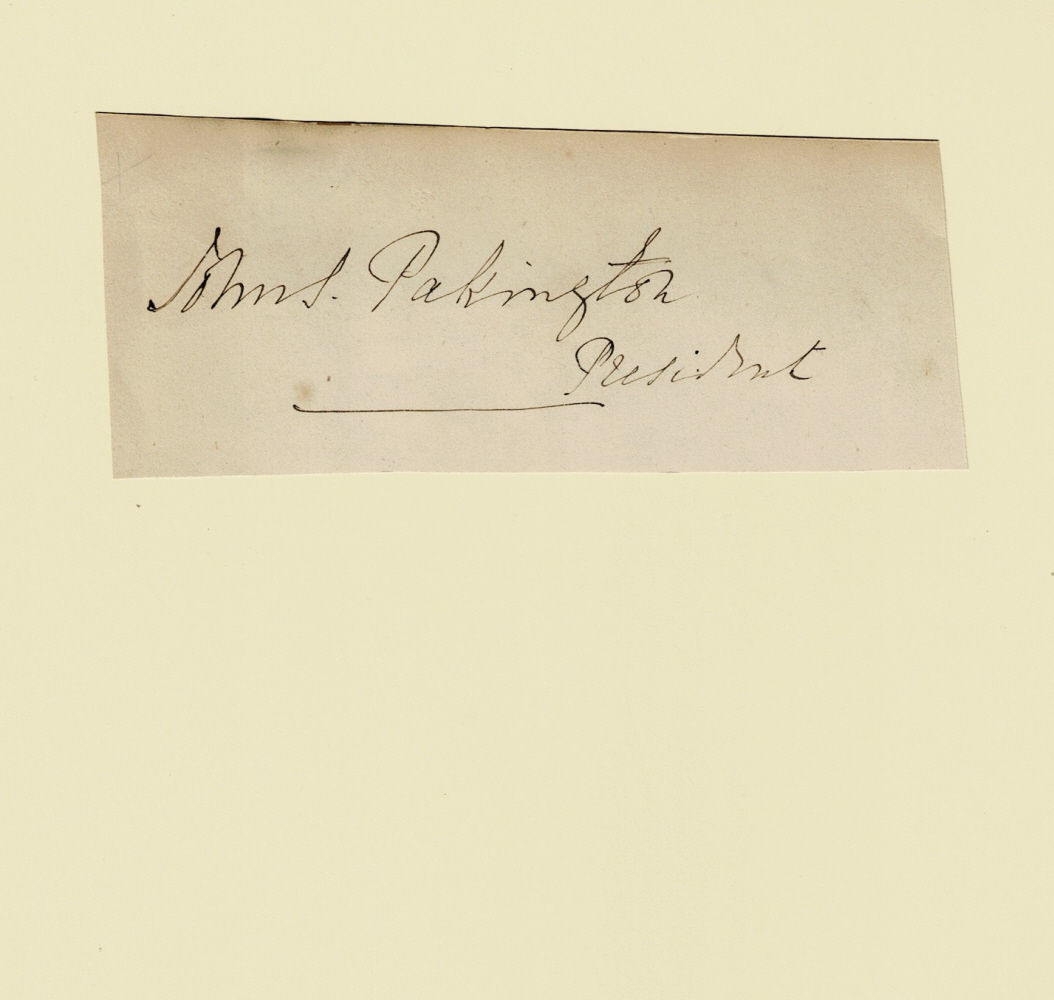 John S. Pakington
President